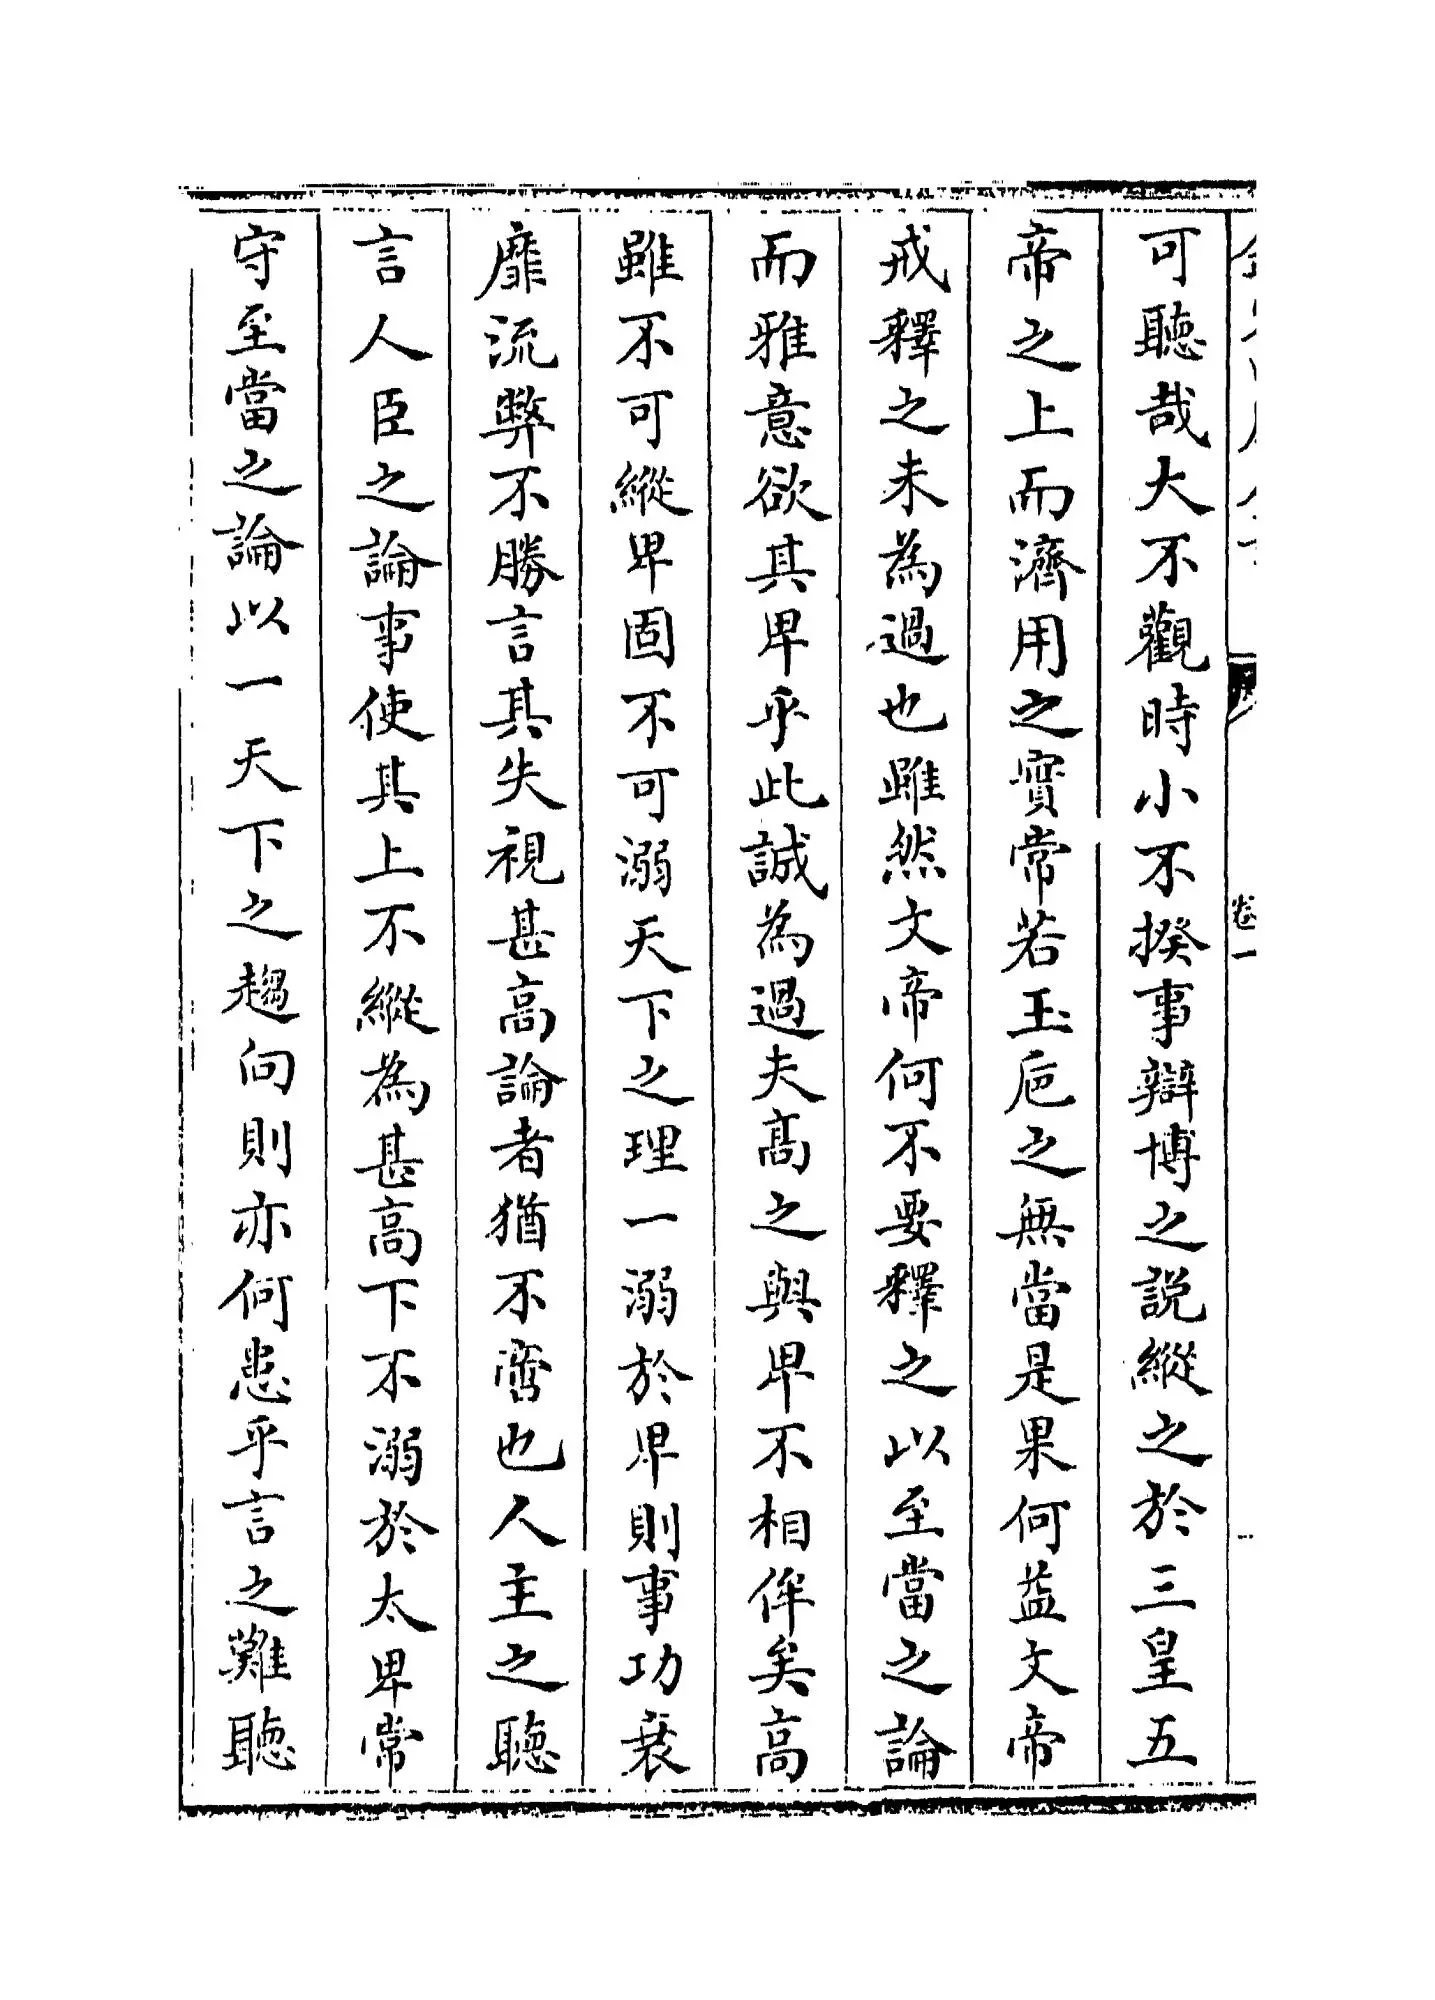 可聽哉大不觀時小不揆事辯博之説縱之於三皇五
帝之上而濟用之實常若玉巵之無當是果何益文帝
戒釋之未為過也雖然文帝何不要釋之以至當之論
而雅意欲其卑乎此誠為過夫髙之與卑不相侔矣高
雖不可縱卑固不可溺天下之理一溺於卑則事功衰
靡流弊不勝言其失視甚高論者猶不啻也人主之聽
言人臣之論事使其上不縱為甚高下不溺於太卑常
守至當之論以一天下之趨向則亦何患乎言之難聽
卷一